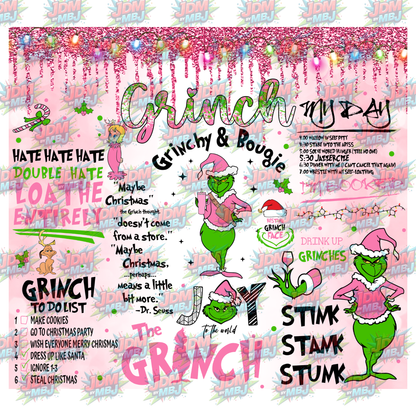 Grinch
Grinchy & Bougie
HATE HATE HATE
DOUBLE HATE
LOATHE
ENTIRELY
GRINCH
TO DO LIST
1 MAKE COOKIES
2 GO TO CHRISTMAS PARTY
3 WISH EVERYONE MERRY CHRISMAS
4 DRESS UP LIKE SANTA
5 IGNORE 1-3
6 STEAL CHRISTMAS
"Maybe
Christmas"
the Grinch thought
"doesn't come
from a store."
"Maybe
Christmas,
perhaps...
means a little
bit more."
- Dr. Seuss
The
GRINCH
JOY
to the world
MY DAY
4:00 WALLOW IN SELF PITY
4:30 STARE INTO THE ABYSS
5:00 SOLVE WORLD HUNGER (TELL NO ONE)
5:30 JAZZERCISE
6:30 DINNER WITH ME (I CAN'T CANCEL THAT AGAIN)
7:00 WRESTLE WITH MY SELF-LOATHING
I'M BOOKED
RESTING
GRINCH
FACE
DRINK UP
GRINCHES
STINK
STANK
STUNK
JDM
MBJ